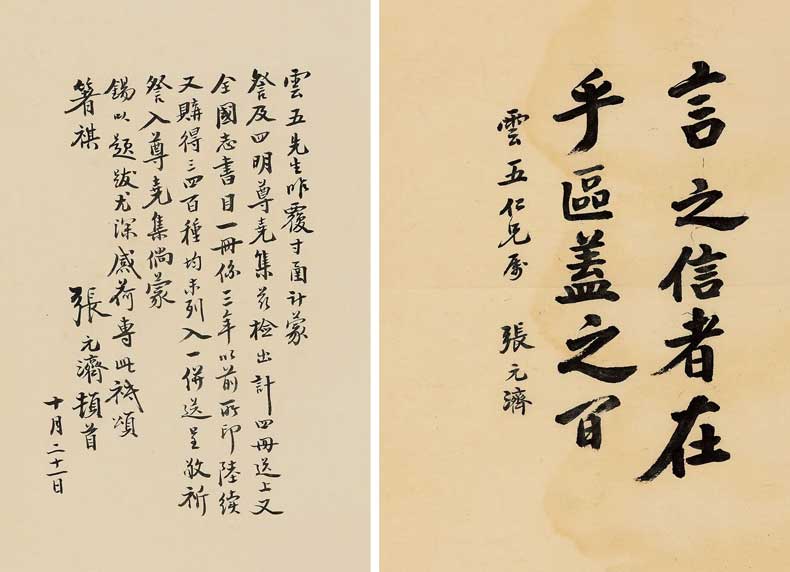 雲五先生昨覆寸函計蒙
詧及四明尊堯集茲檢出計四冊送上又
全國志書目一冊係三年以前所印陸續
又購得三四百種均未列入一併送呈敬祈
詧入尊堯集倘蒙
錫以題跋尤深感荷專此祗頌
箸祺
張元濟頓首
十月二十一日
言之信者在
乎區蓋之間
雲五仁兄屬
張元濟